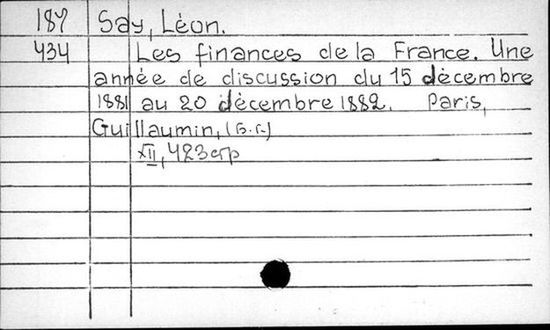 187 Say, Léon.
434 Les finances de la France. Une
année de discussion du 15 décembre
1881 au 20 décembre 1882. Paris,
Guillaumin, (б.г.)
XII, 423 стр